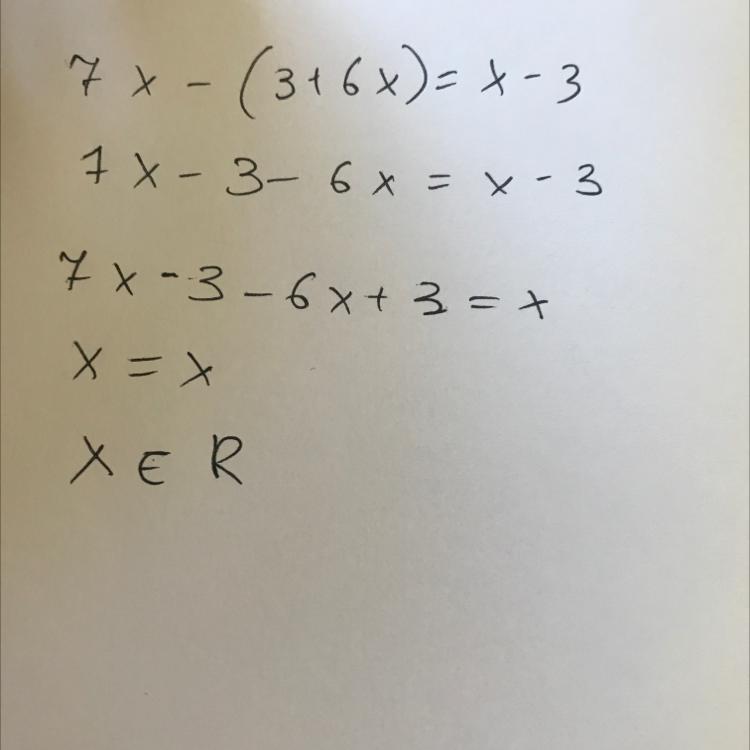 7x - (3+6x) = x - 3
7x - 3 - 6x = x - 3
7x - 3 - 6x + 3 = x
x = x
x ∈ R